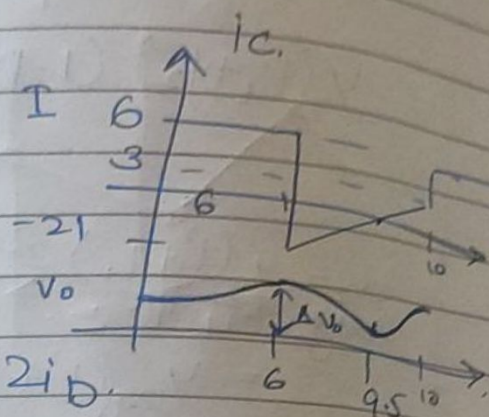 ic.
I 6
3
6
-21
10
Vo
ΔVo
2iD.
6 9.5 10